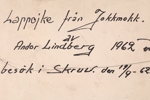 Lappojke från Jokkmokk.
av
Andor Lindberg 1962.
besök i Skruv. den 18/9-62